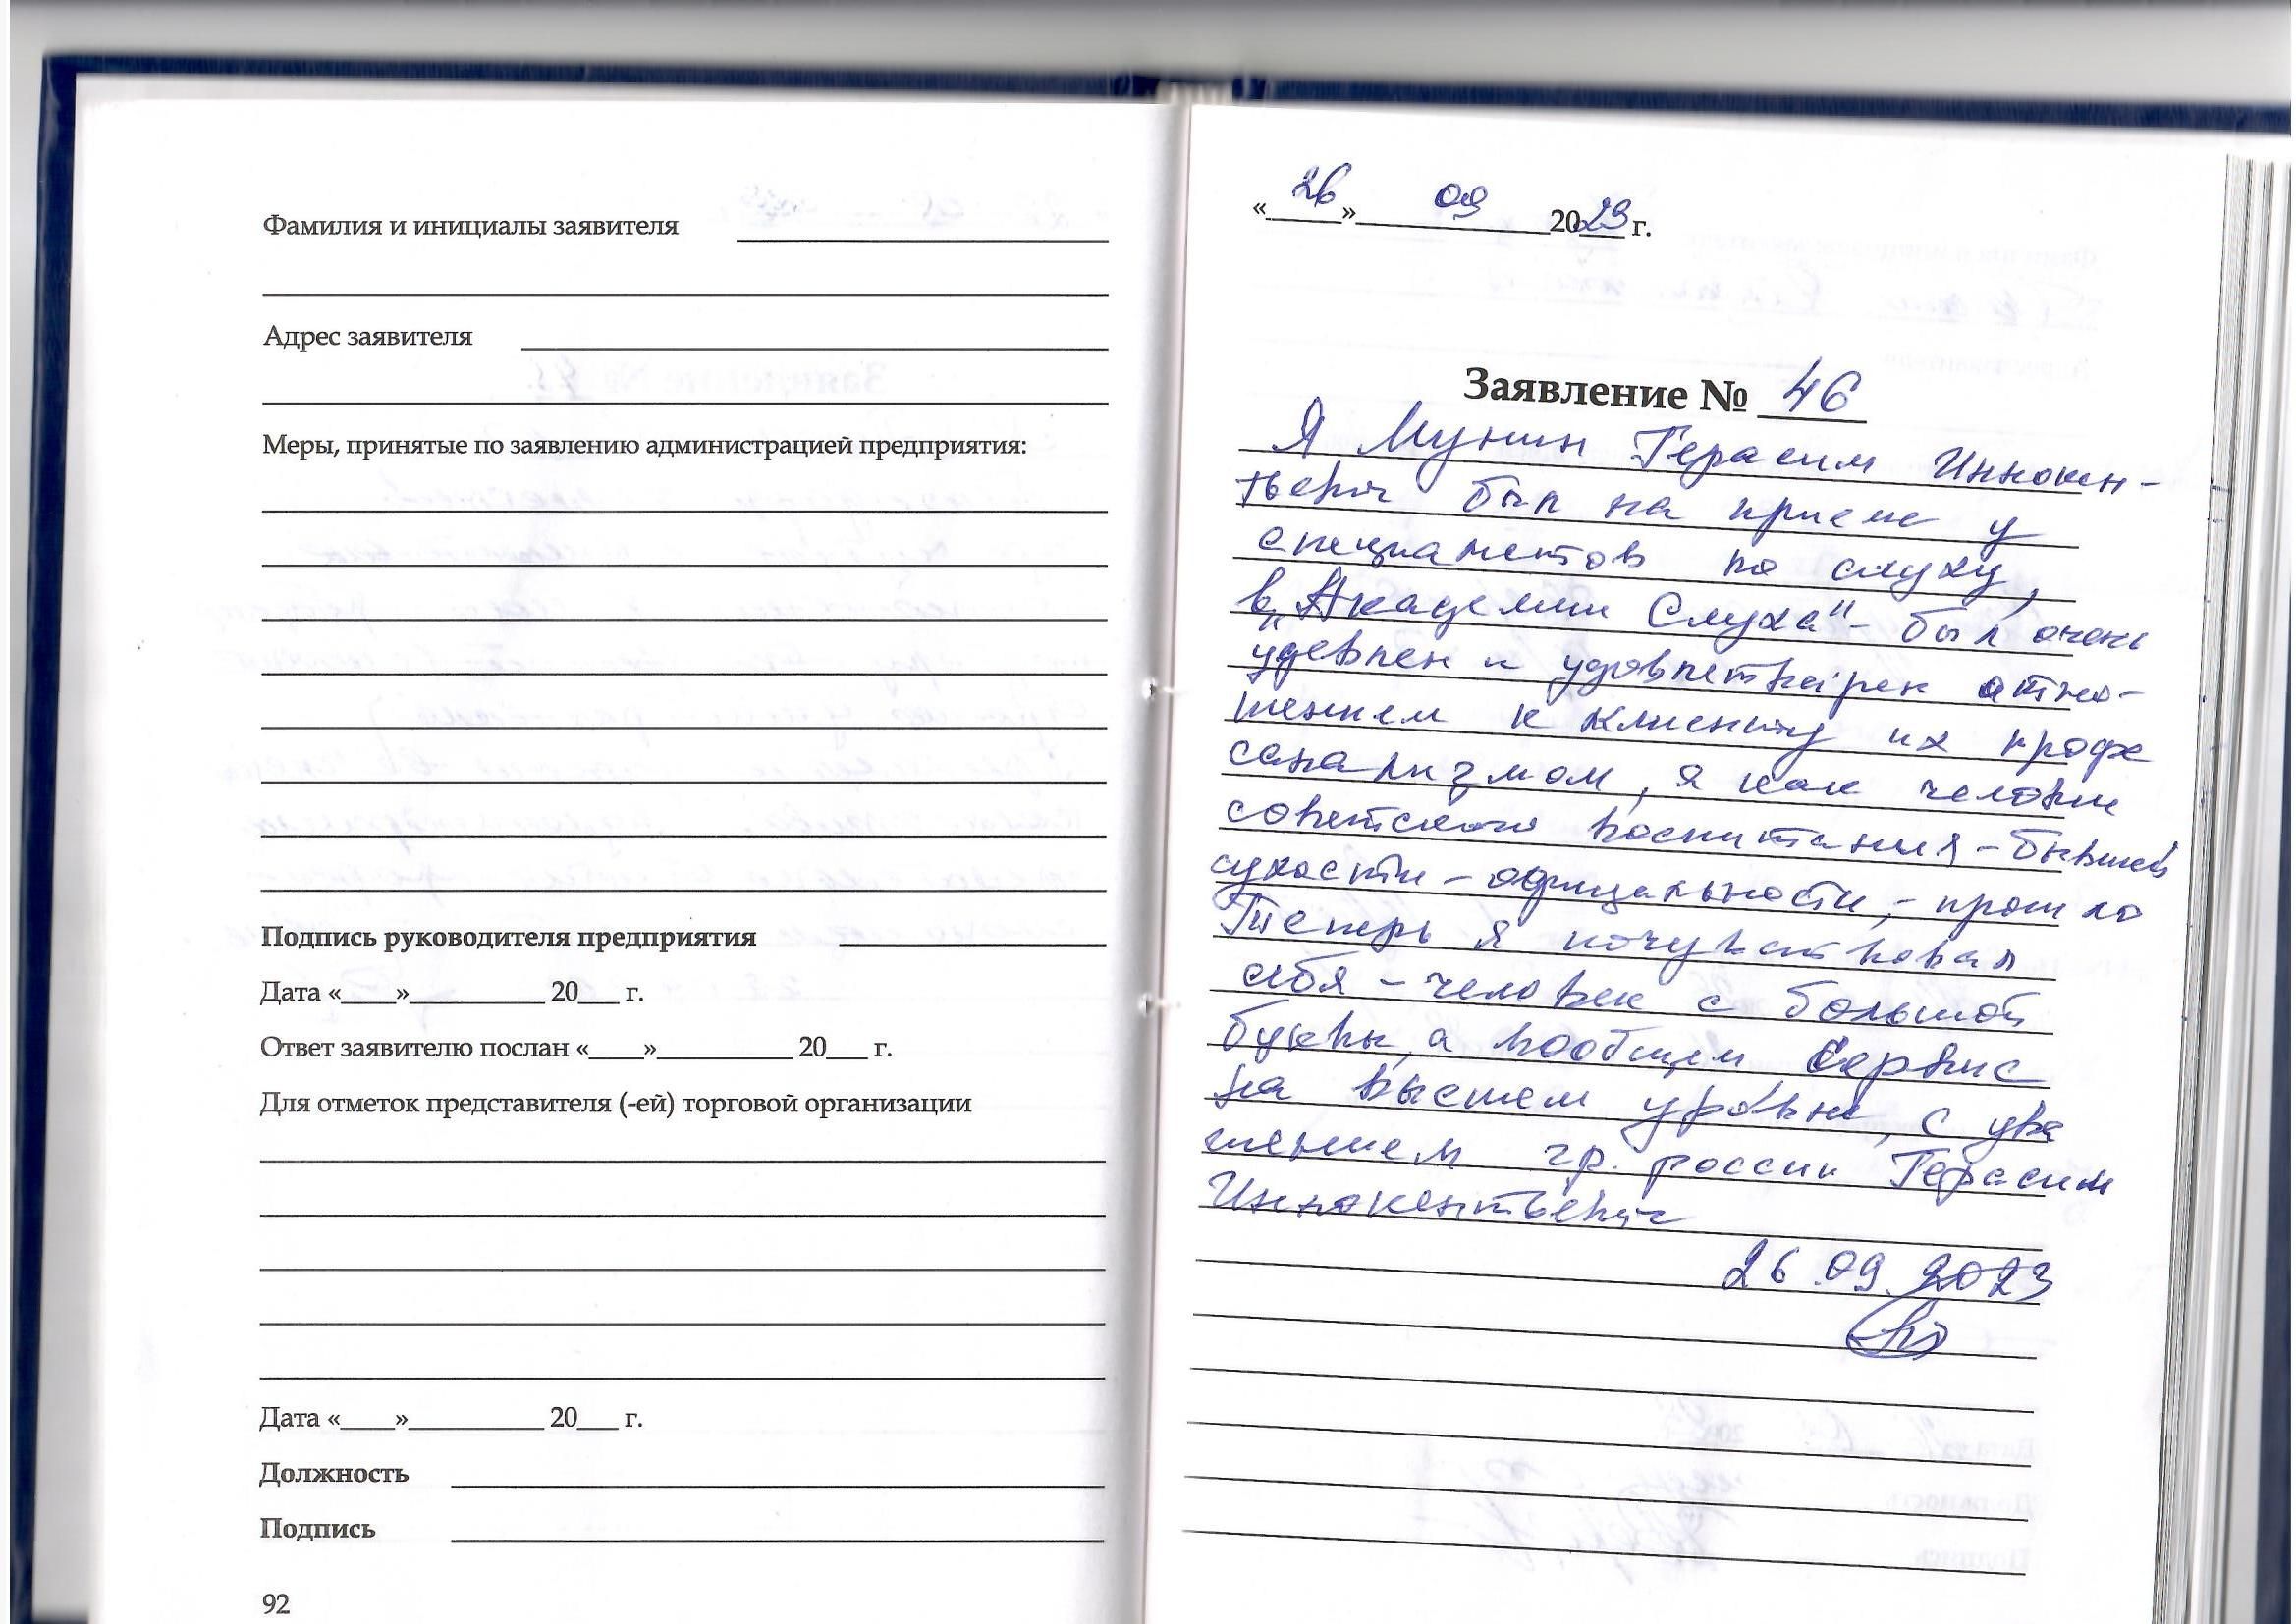 Фамилия и инициалы заявителя
Адрес заявителя
Меры, принятые по заявлению администрацией предприятия:
Подпись руководителя предприятия
Дата «____»__________ 20___ г.
Ответ заявителю послан «____»__________ 20___ г.
Для отметок представителя (-ей) торговой организации
Дата «____»__________ 20___ г.
Должность
Подпись
92
«26» 09 2023 г.
Заявление № 46
Я Мунин Герасим Иннокен-
тьевич был на приеме у
специалистов по слуху,
в „Академии Слуха" - был очень
удевлен и удовлетворен отно-
шением к клиенту их профе
сенализмом, я как человек
советского воспитания - бывшей
сухости - офицальности, - прошло
Теперь я почувствовал
себя - человек с большой
буквы, а вообщем сервис
на высшем уровне, с ува
жением гр. россии Герасим
Иннокентьевич
26.09.2023